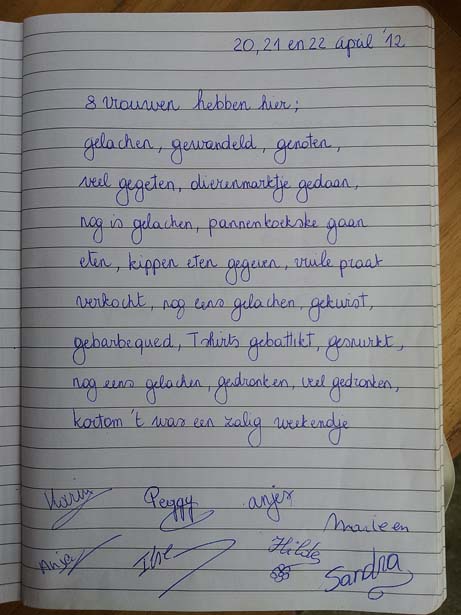 20, 21 en 22 april '12
8 vrouwen hebben hier;
gelachen, gewandeld, genoten,
veel gegeten, dierenmarktje gedaan,
nog is gelachen, pannenkoekske gaan
eten, kippen eten gegeven, vuile praat
verkocht, nog eens gelachen, gekuist,
gebarbequed, Tshirts gebattikt, gesnurkt,
nog eens gelachen, gedronken, veel gedronken,
kortom 't was een zalig weekendje
Karin Peggy anjes
Marleen
Anja Ilse Hilde Sandra